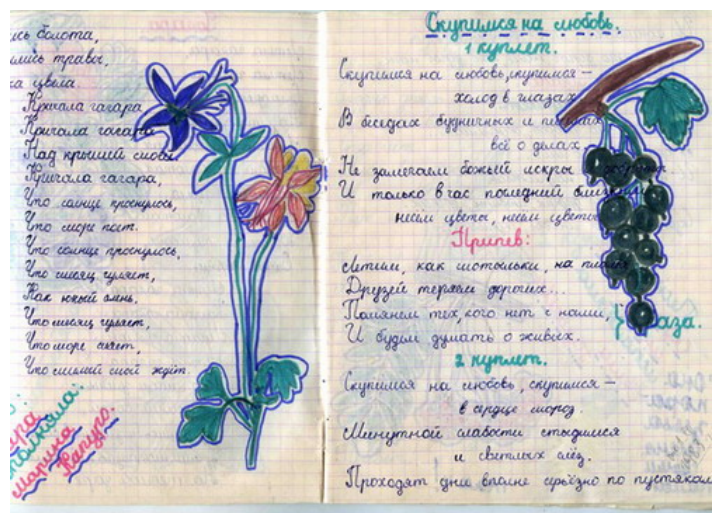 ись болота,
ились травы,
ка цвела.
Кричала гагара
Кричала гагара
Над крышей моей
Кричала гагара,
Что солнце проснулось,
Что море поёт.
Что солнце проснулось,
Что месяц гуляет,
Как юный олень.
Что месяц гуляет,
Что море сияет,
Что милый мой ждёт.
Марина
Капуро.
Скупимся на любовь.
1 куплет.
Скупимся на любовь, скупимся –
холод в глазах
В беседах будничных и
всё о делах.
Не замечаем божьей искры
И только в час последний
несём цветы, несём цветы
Припев:
Летим, как мотыльки, на пламя
Друзей теряем дорогих...
Помянем тех, кого нет с нами,
И будем думать о живых.
} 2 раза.
2 куплет.
Скупимся на любовь, скупимся –
в сердце мороз.
Минутной слабости стыдимся
и светлых слёз.
Проходят дни вполне серьёзно по пустякам